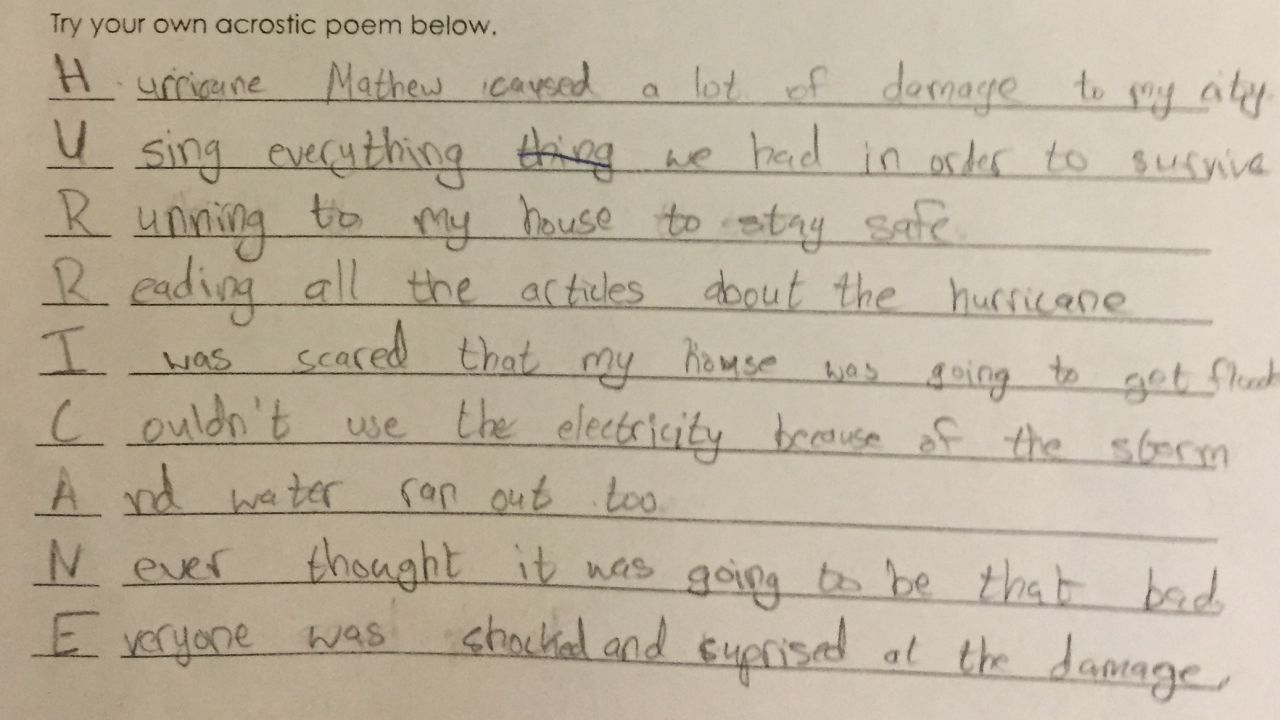 Try your own acrostic poem below.
H urricane Mathew caused a lot of damage to my city.
U sing everything thing we had in order to survive
R unning to my house to stay safe.
R eading all the articles about the hurricane
I was scared that my house was going to get flood
C ouldn't use the electricity because of the storm
A nd water ran out too.
N ever thought it was going to be that bad.
E veryone was shocked and suprised at the damage.